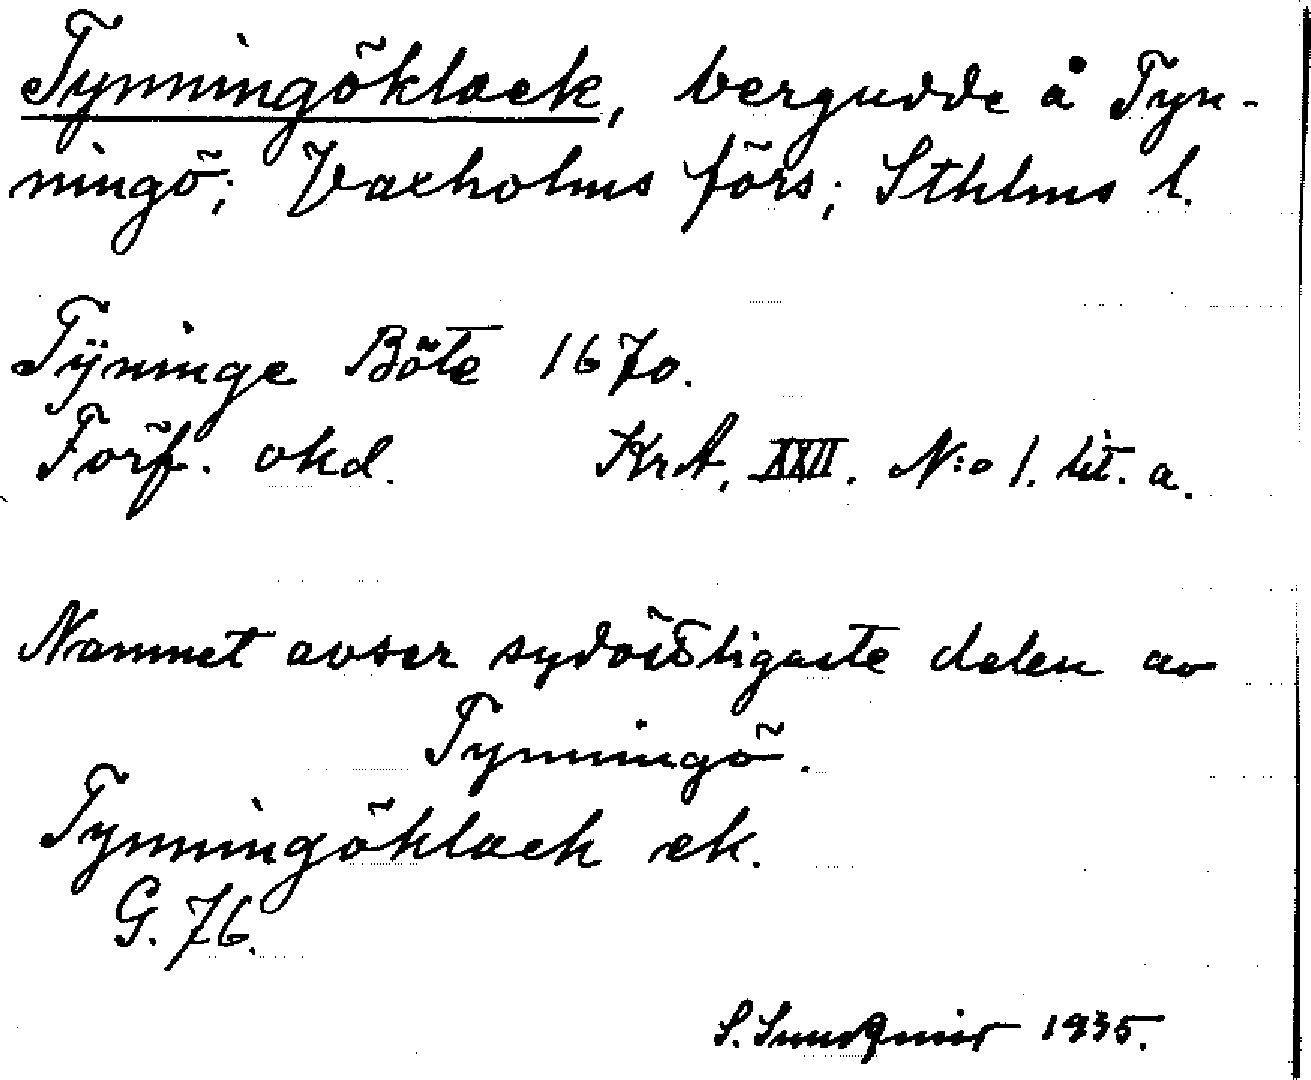 Tynningöklack, bergudde å Tyn-
ningö; Vaxholms förs; Sthlms l.
Tÿninge Böte 1670.
Förf. okd. KrA, XXII. N:o 1. lit. a.
Namnet avser sydöstligaste delen av
Tynningö.
Tynningöklack ek.
G. 76.
S. Sundqvist 1935.